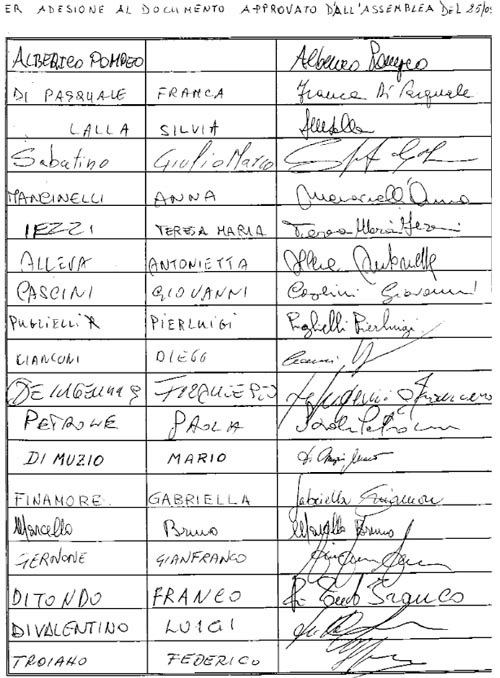 ER ADESIONE AL DOCUMENTO APPROVATO DALL'ASSEMBLEA DEL 25/0
ALBERICO POMPEO Alberico Pompeo
DI PASQUALE FRANCA Franca Di Pasquale
LALLA SILVIA
Sabatino Giulio Marco
MANCINELLI ANNA Mancinelli Anna
IEZZI TERESA MARIA Teresa Maria Iezzi
ALLEVA ANTONIETTA Alleva Antonietta
CASCINI GIOVANNI Giovanni
PUGLIELLI PIERLUIGI Puglielli Pierluigi
CIANCONI DIEGO
FRANCESCO
PETRONE PAOLA Paola Petrone
DI MUZIO MARIO
FINAMORE GABRIELLA Gabriella Finamore
Marcello Bruno Marcello Bruno
GERNONE GIANFRANCO
DITONDO FRANCO Di Tondo Franco
DIVALENTINO LUIGI
TROIANO FEDERICO